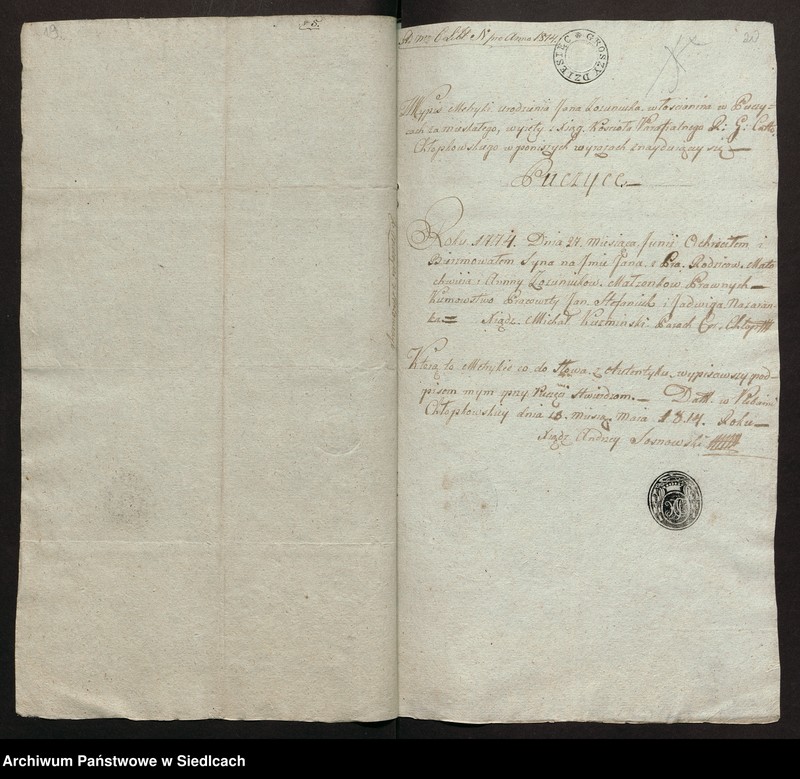 19.
5.
20
pro Anno 1814.
DZIESIĘC GROSZY
Wypis Metryki urodzenia Jana Łozaniuka włościanina w Puczy-
cach zamieszkałego, wyięty z Xiąg Kościoła Parafialnego R: G: Catt:
Chłopkowskiego w poniższych wyrazach znayduiący się
Puczyce
Roku 1774. Dnia 27. Miesiąca Junii Ochrzciłem i
Bierzmowałem Syna na Imie Jana z Rodziców
i Annny Małżonkow Prawnych
Kumowstwo Pracowity Jan Stefaniuk i Jadwiga Nazaran-
ka Xiądz Michał Kuzminski Paroch
Ktorą to Metrykię co do Słowa z Autentyku wypisawszy pod-
pisem mym przy Pieczęci stwierdzam. Datt: w Plebanii
Chłopkowskiey dnia 18. Miesią. Maia 1814. Roku
Xiądz Andrzey Sosnowski
Archiwum Państwowe w Siedlcach